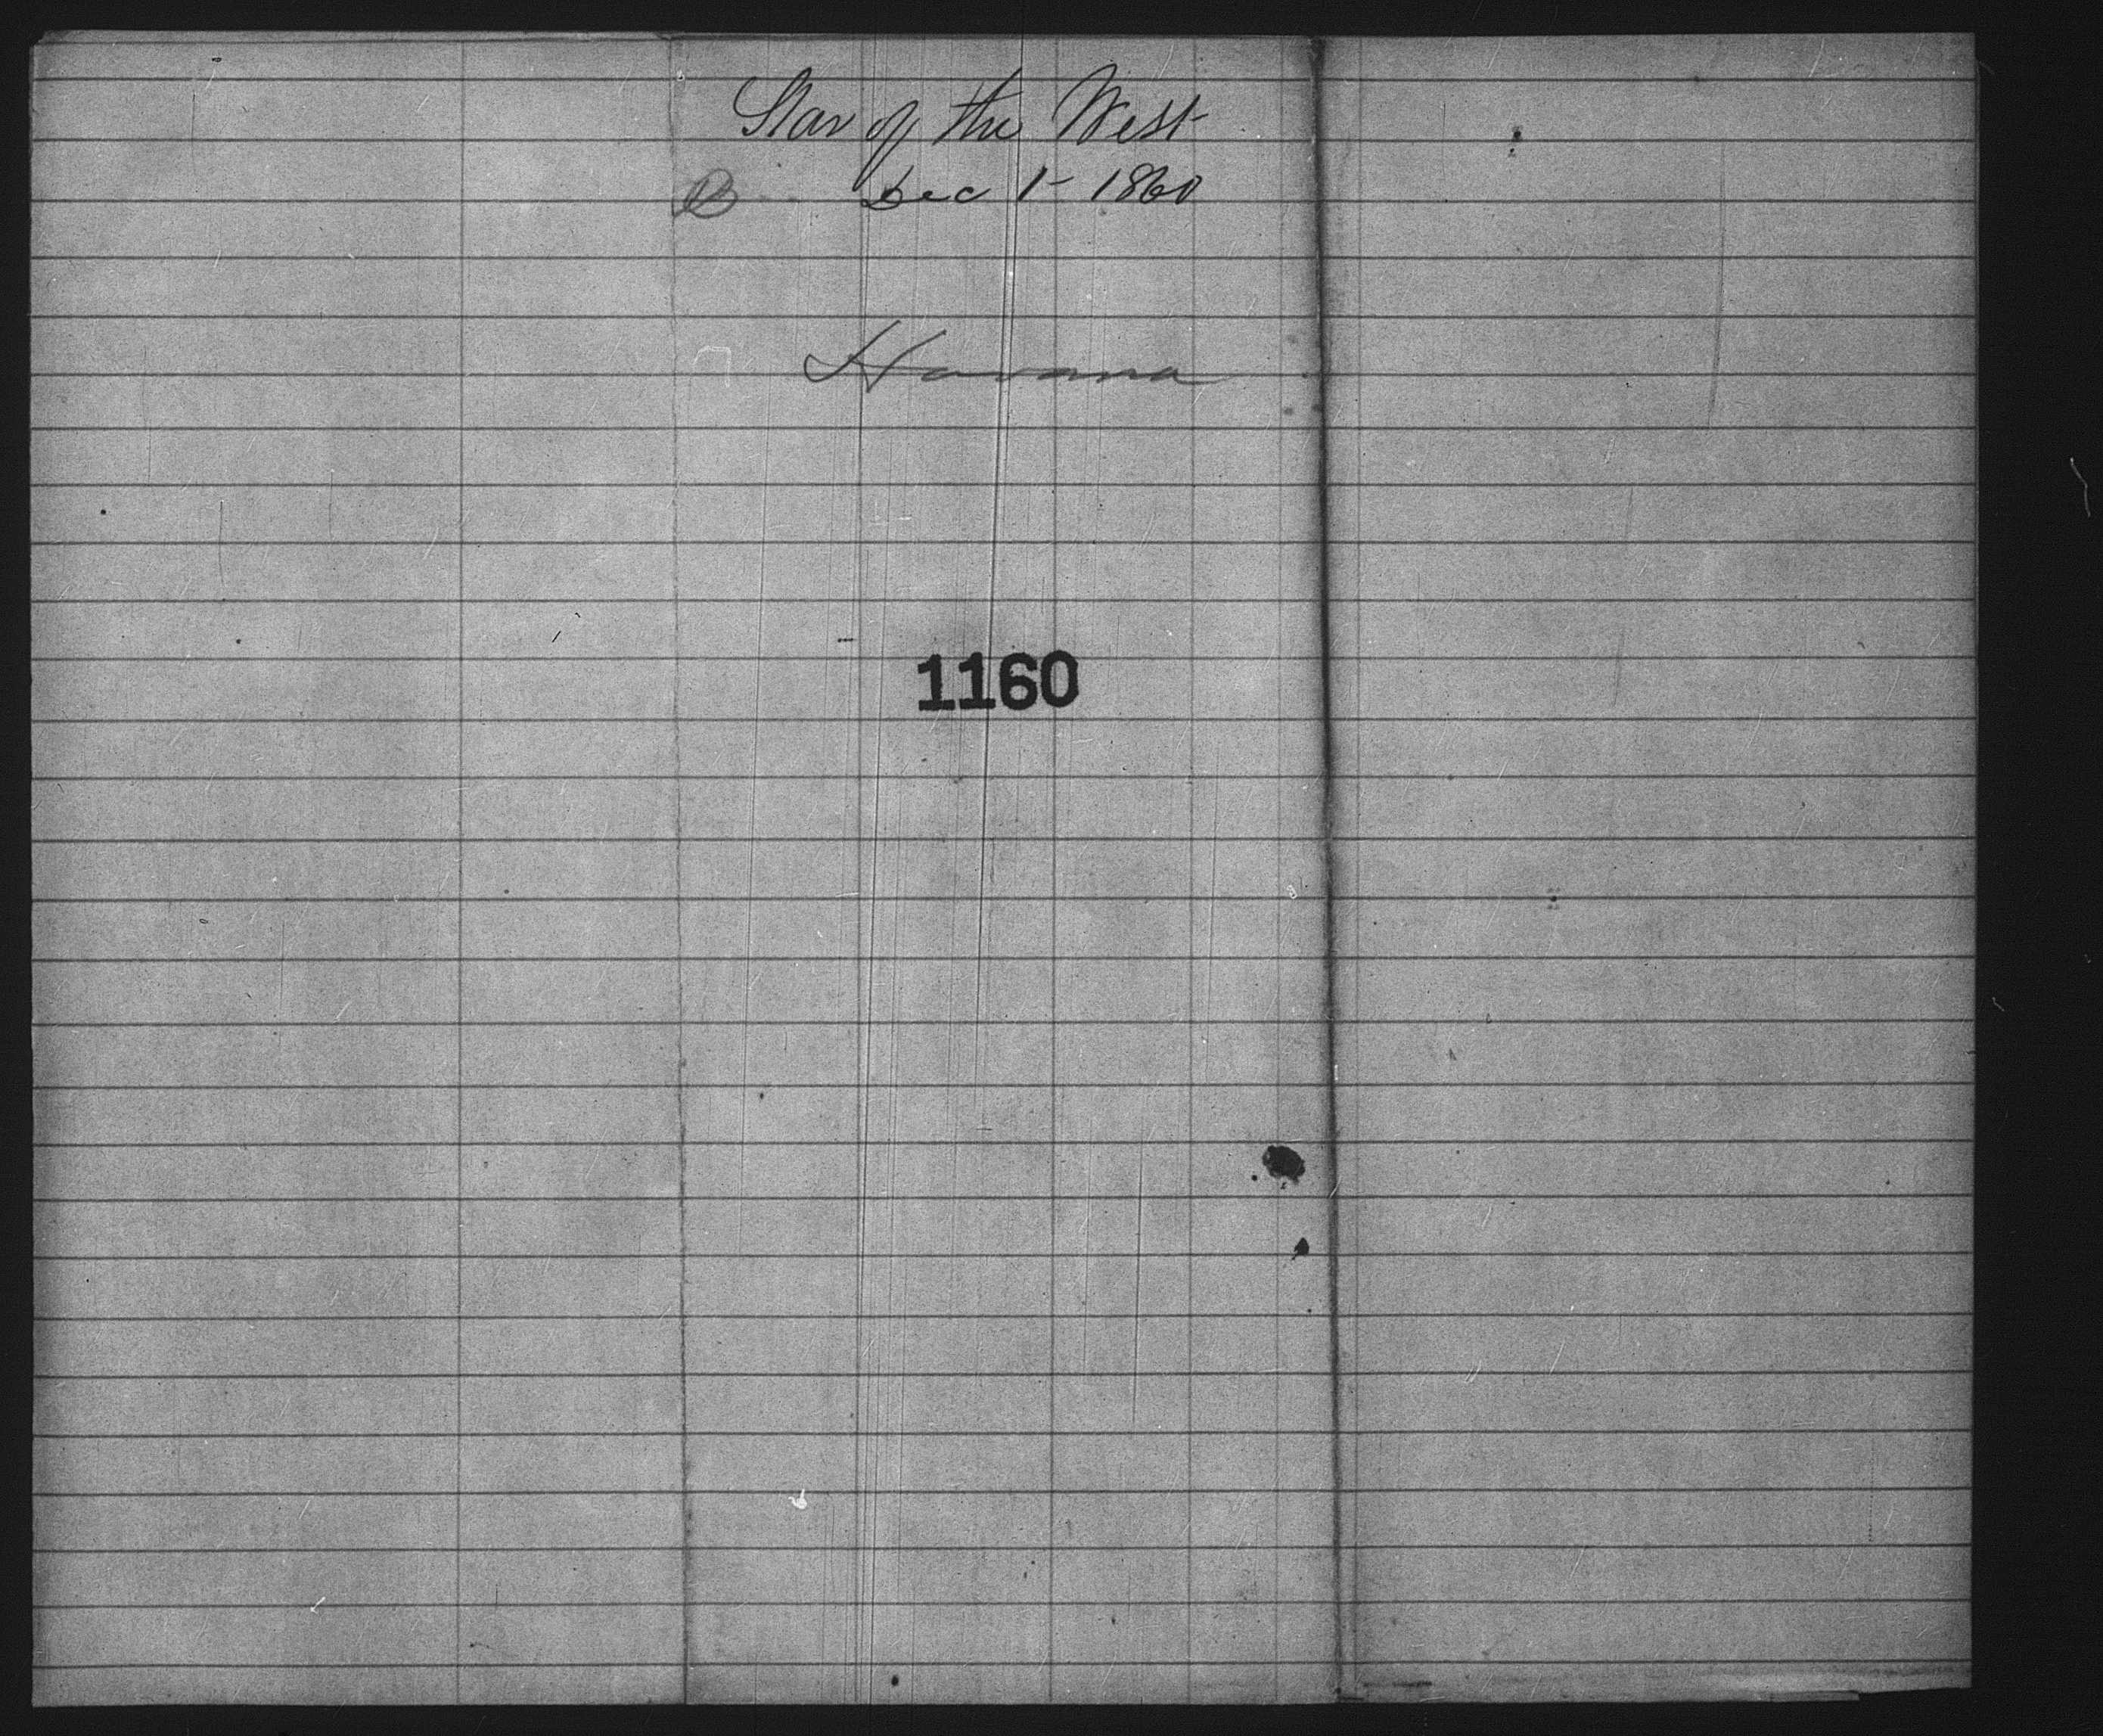 Star of the West
B Dec 1 - 1860
Havana
1160